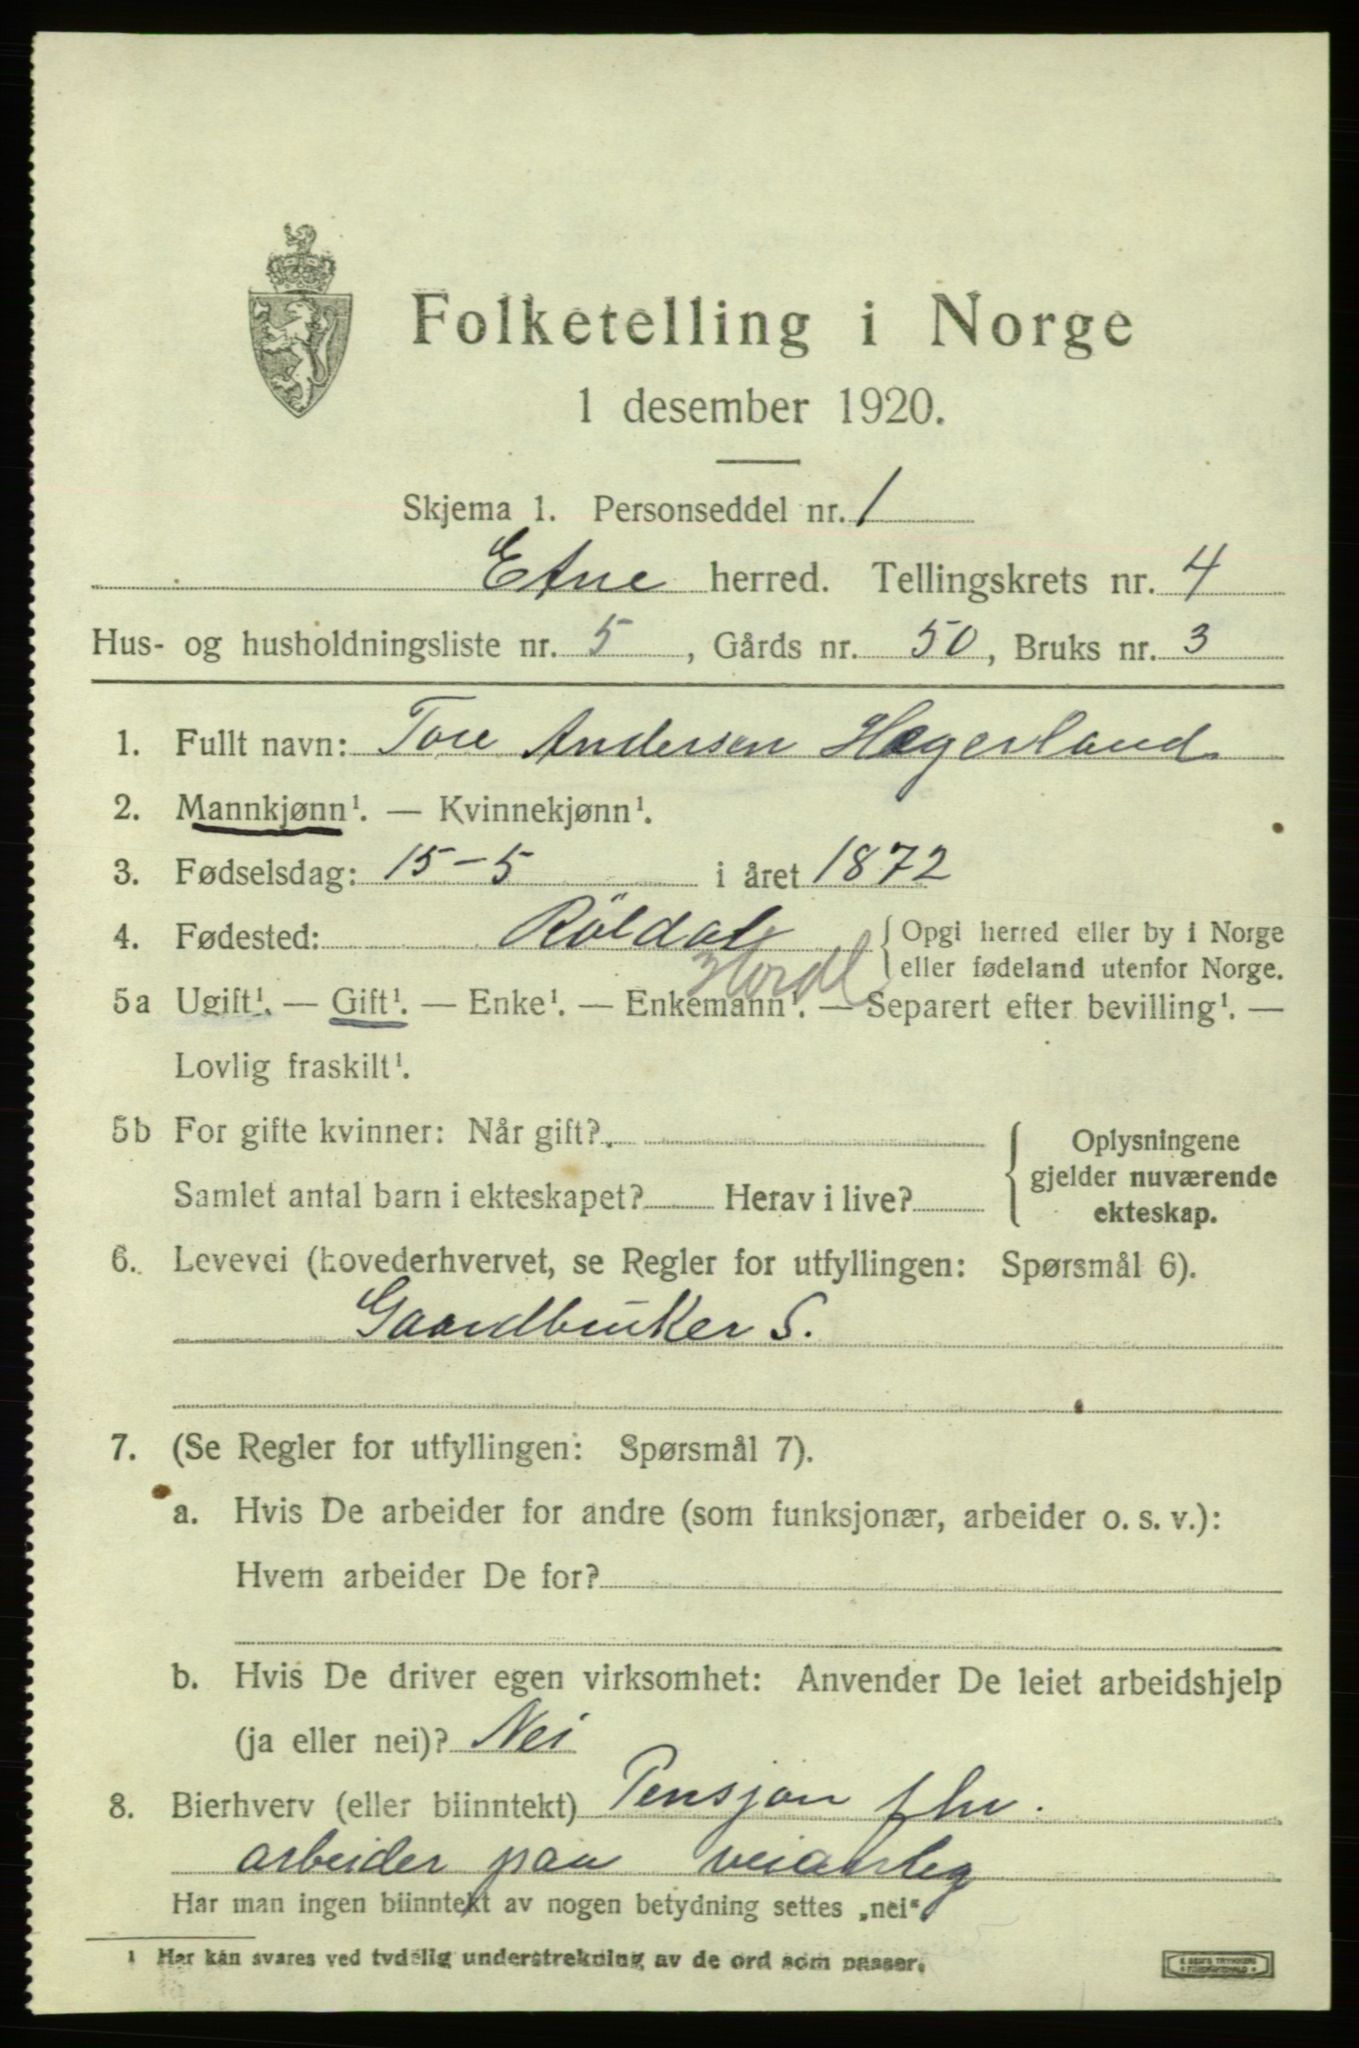 Folketelling i Norge
1 desember 1920.
Skjema 1. Personseddel nr. 1
Etne herred. Tellingskrets nr. 4
Hus- og husholdningsliste nr. 5, Gårds nr. 50, Bruks nr. 3
1. Fullt navn: Tore Andersen Hegerland
2. Mannkjønn¹. — Kvinnekjønn¹.
3. Fødselsdag: 15-5 i året 1872
4. Fødested: Röldal { Opgi herred eller by i Norge
eller fødeland utenfor Norge.
Hordl
5a Ugift¹. — Gift¹. — Enke¹. — Enkemann¹. — Separert efter bevilling¹. —
Lovlig fraskilt¹.
5b For gifte kvinner: Når gift?
Samlet antal barn i ekteskapet? Herav i live?
{ Oplysningene
gjelder nuværende
ekteskap.
6. Levevei (hovederhvervet, se Regler for utfyllingen: Spørsmål 6).
Gaardbruker S.
7. (Se Regler for utfyllingen: Spørsmål 7).
a. Hvis De arbeider for andre (som funksjonær, arbeider o. s. v.):
Hvem arbeider De for?
b. Hvis De driver egen virksomhet: Anvender De leiet arbeidshjelp
(ja eller nei)? Nei
8. Bierhverv (eller biinntekt) Pensjon fhv.
arbeider paa veianleg
Har man ingen biinntekt av nogen betydning settes „nei“
¹ Her kan svares ved tydelig understrekning av de ord som passer.